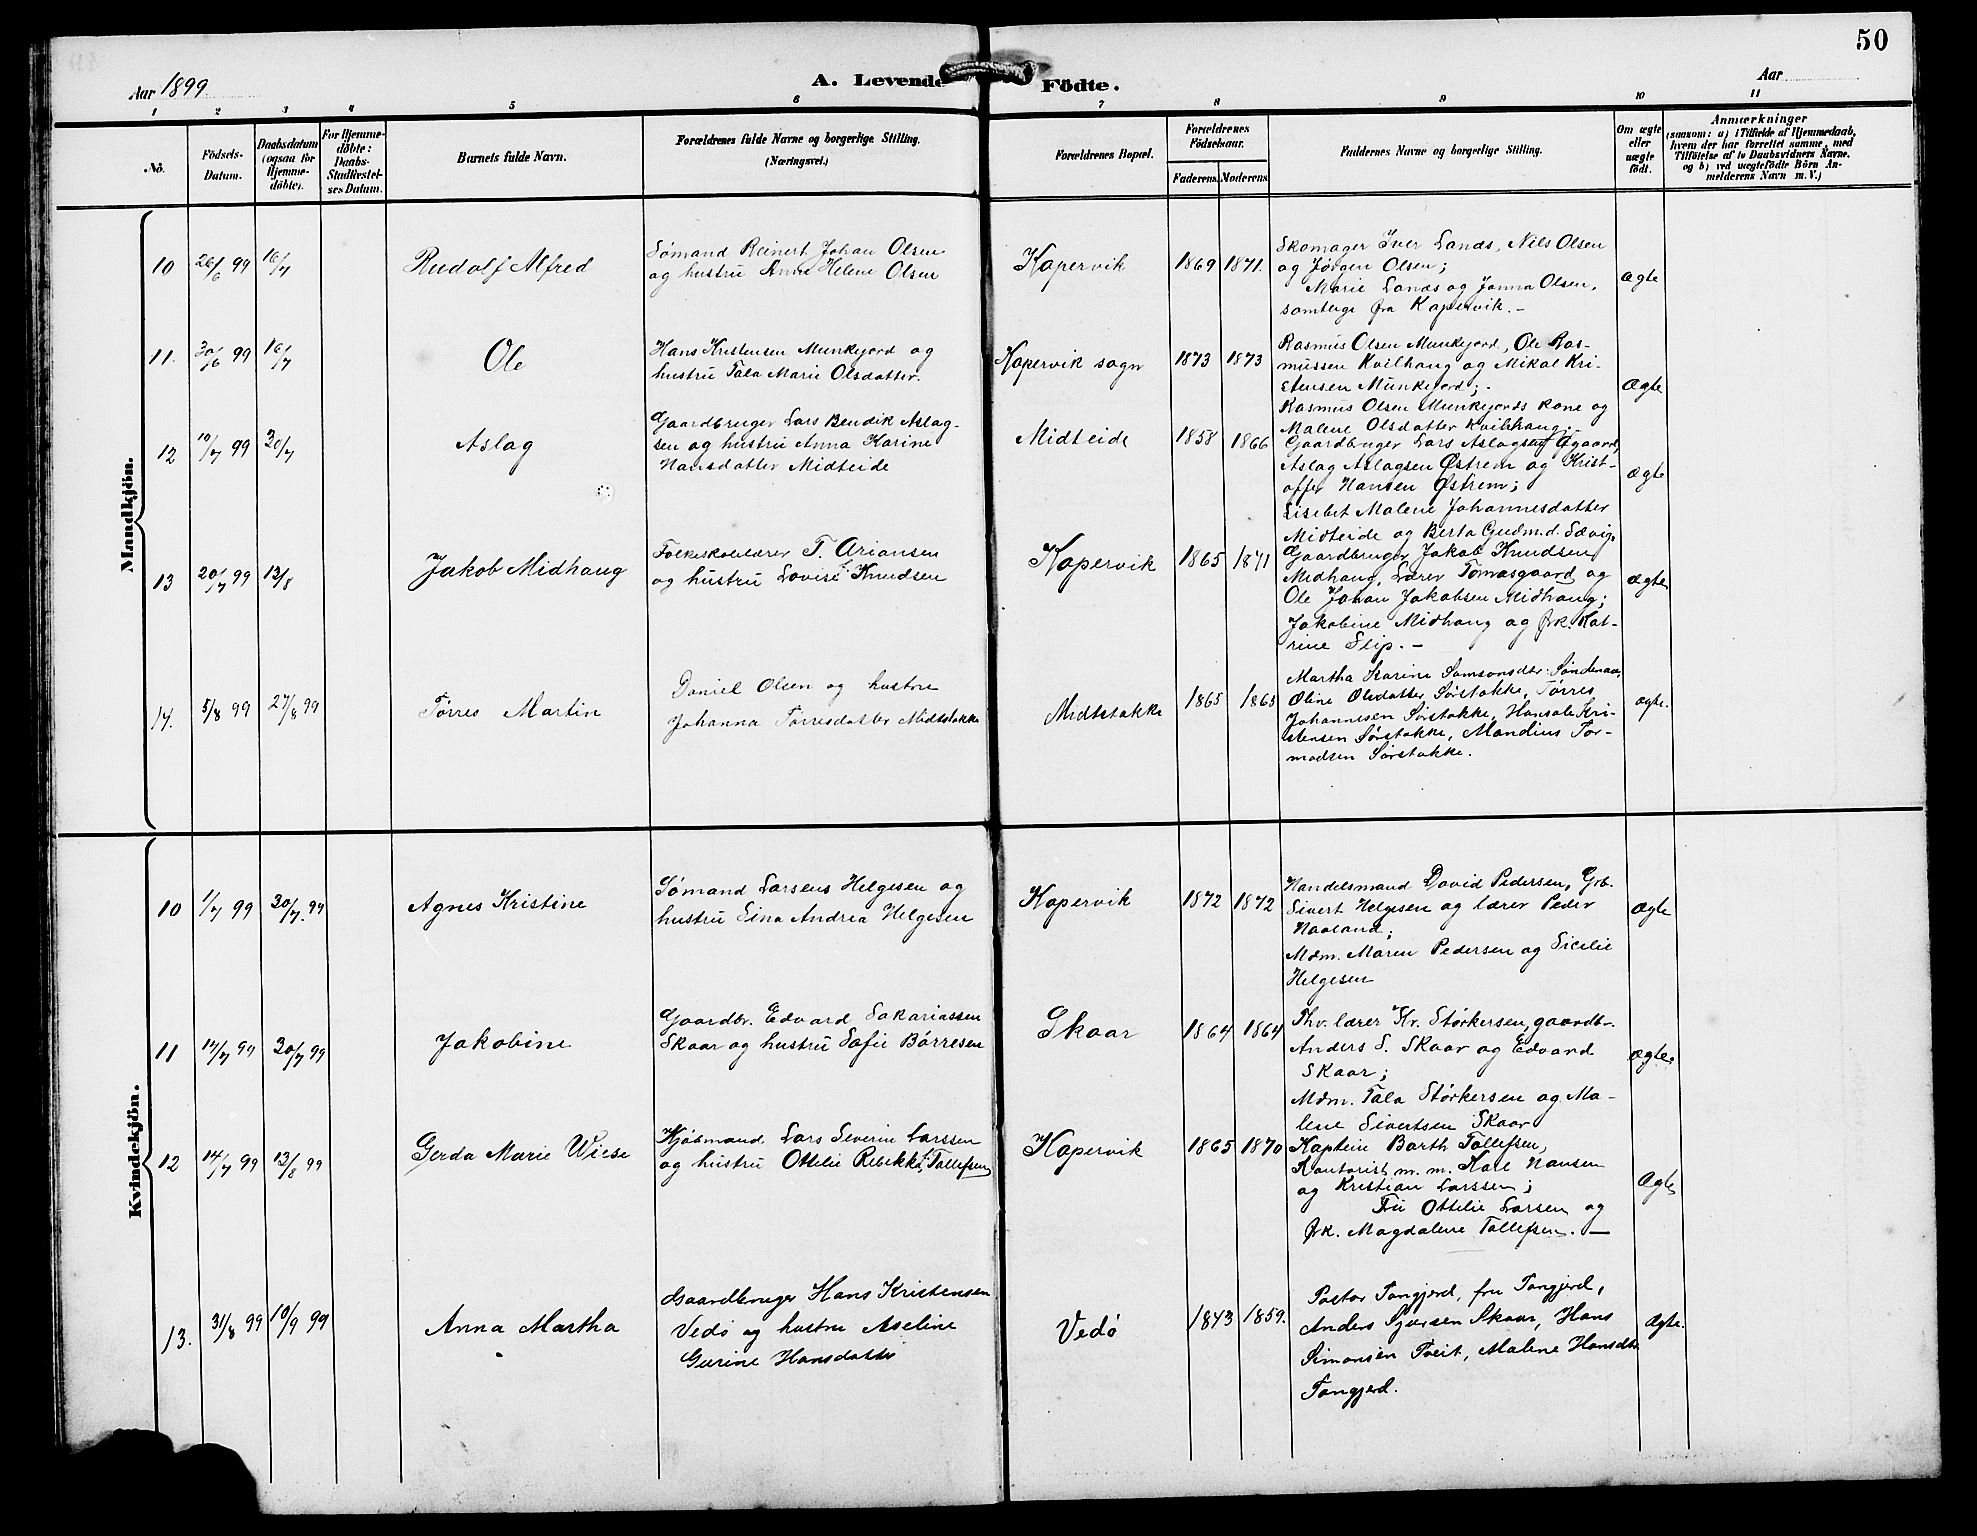 50
Aar 1899
A. Levende Födte.
Aar
1 2 3 4 5 6 7 8 9 10 11
No.
Födsels-
Datum.
Daabsdatum
(ogsaa for
Hjemme-
döbte).
For Hjemme-
döbte:
Daabs-
Stadfæstel-
ses Datum.
Barnets fulde Navn.
Forældrenes fulde Navne og borgerlige Stilling.
(Næringsvei.)
Forældrenes Bopæl.
Forældrenes
Födselsaar.
Faderens.
Moderens.
Faddernes Navne og borgerlige Stilling.
Om ægte
eller
uægte
födt.
Anmærkninger
(saasom: a) i Tilfælde af Hjemmedaab,
hvem der har forrettet samme, med
Tilföielse af to Daabsvidners Navne.
og b) ved uægtefödte Börn An-
melderens Navn m. V.)
Mandkjön.
10
26/6 99
16/7
Rudolf Alfred
Sømand Reinert Johan Olsen
og hustru Anna Helene Olsen
Kopervik
1869
1871.
Skomager Iver Lands, Nils Olsen
og Jørgen Olsen;
Marie Lands og Janna Olsen,
samtlige fra Kopervik. -
ægte
11.
30/6 99
16/7
Ole
Hans Kristensen Munkejord og
hustru Tala Marie Olsdatter.
Kopervik sogn
1873
1873
Rasmus Olsen Munkejord, Ole Ras-
mussen Kvilhaug og Mikal Kri-
stensen Munkejord; -
Rasmus Olsen Munkejords kone og
Malene Olsdatter Kvilhaug. -
Ægte
12
10/7 99
30/7
Aslag
Gaardbruger Lars Bendik Aslag-
sen og hustru Anna Karine
Hansdatter Midteide
Midteide
1858
1866
Gaardbruger Lars Aslagsen Øgaard,
Aslag Aslagsen Østrem og Krist-
offer Hansen Østrem;
Lisebet Malene Johannesdatter
Midteide og Berta Gudm.d. Sævig.
ægte
13
20/7 99
13/8
Jakob Midhaug
Folkeskolelærer T. Ariansen
og hustru Lovise f. Knudsen
Kopervik
1865
1871
Gaardbruger Jakob Knudsen
Midhaug, Lærer Tomasgaard og
Ole Johan Jakobsen Midhaug;
Jakobine Midhaug og Frk. Kat-
rine Slip. -
ægte
14.
5/8 99
27/8 99
Tørres Martin
Daniel Olsen og hustru
Johanna Tørresdatter Midtstokke
Midtstokke
1865
1865
Martha Karine Samsonsdtr. Søndenaa,
Oline Olsdatter Sørstokke, Tørres
Johannesen Sørstokke, Hansole Kri-
stensen Sørstokke, Mandius Tor-
modsen Sørstokke.
ægte.
Kvindekjön.
10
1/7 99
30/7. 99
Agnes Kristine
Sømand Larsens Helgesen og
hustru Sina Andrea Helgesen
Kopervik
1872
1872
Handelsmand David Pedersen, Grb.
Sivert Helgesen og lærer Peder
Naaland;
Mdm. Maren Pedersen og Sicelie
Helgesen
Ægte
11
30/7 99
Jakobine
Gaardbr. Edvard Sakariassen
Skaar og hustru Sofie Børresen
Skaar
1864
1864
Thv. lærer Kr. Størkersen, gaardb-.
Anders S. Skaar og Edvard
Skaar;
Mdm. Tala Størkersen og Ma-
lene Sivertsen Skaar
ægte
12
14/7 99
13/8 99
Gerda Marie Wiese
Kjøbmand Lars Severin Larssen
og hustru Ottelie Ribekka f. Tollefsen
Kopervik
1865
1870
Kaptein Barth Tollefsen,
Kontorist m. m. Karl Hansen
og Kristian Larssen;
Fru Ottelie Larsen og
Frk. Magdalene Tollefsen. —
Ægte
13.
31/8 99
10/9 99
Anna Martha
Gaardbruger Hans Kristensen
Vedø og hustru Aseline
Gurine Hansdatter
Vedø
1843
1859.
Pastor Tangjerd, fru Tangjerd,
Anders Sjursen Skaar, Hans
Simonsen Tveit, Malene Hansdtr
Tangjerd.
Ægte.